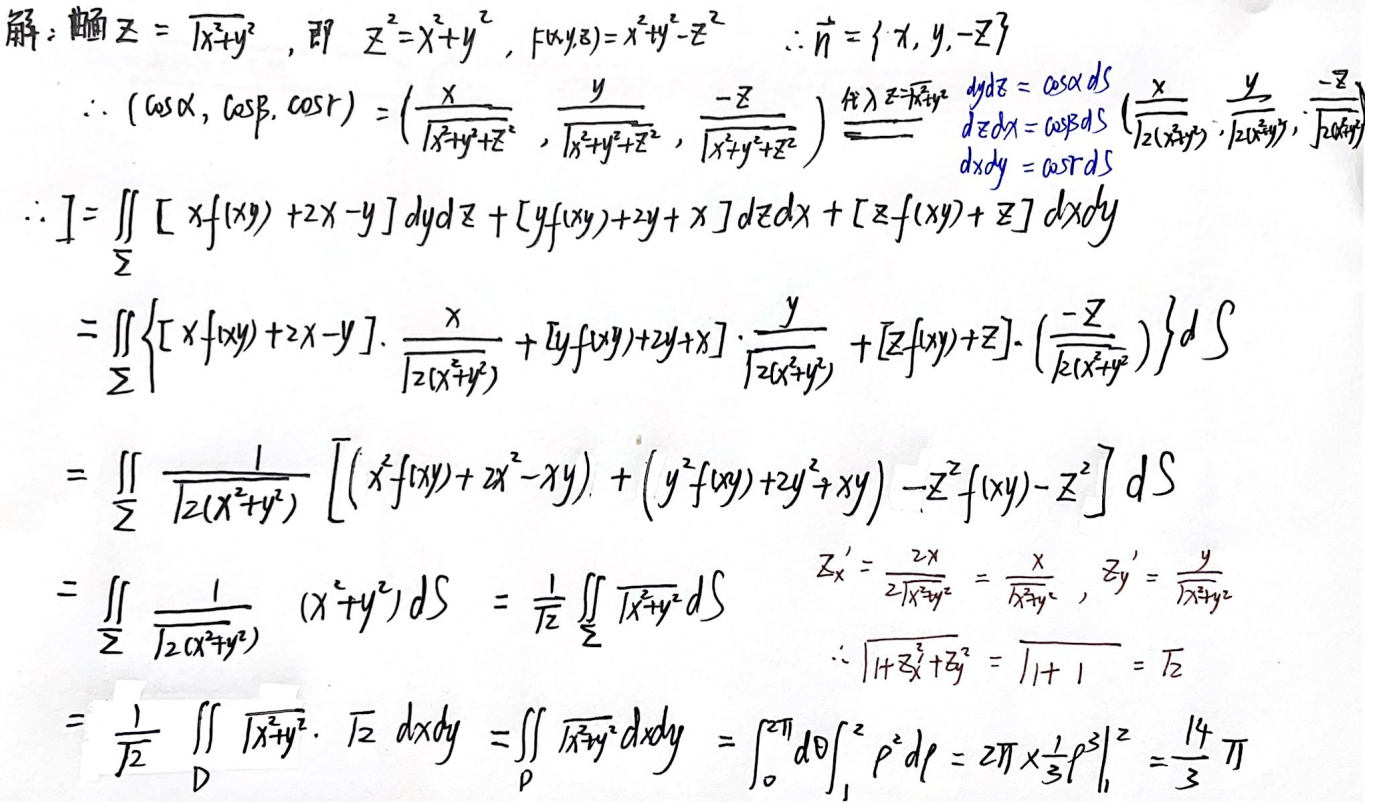 解：曲面 z = √(x²+y²) ，即 z² = x²+y² ，F(x,y,z) = x²+y²-z² ∴ n⃗ = {x, y, -z}
∴ (cosα, cosβ, cosr) = (x/√(x²+y²+z²) , y/√(x²+y²+z²) , -z/√(x²+y²+z²)) 代入 z=√(x²+y²) (x/√(2(x²+y²)) , y/√(2(x²+y²)) , -z/√(2(x²+y²)))
dydz = cosαdS
dzdx = cosβdS
dxdy = cosrdS
∴ I = ∬_Σ [xf(xy)+2x-y]dydz + [yf(xy)+2y+x]dzdx + [zf(xy)+z]dxdy
= ∬_Σ {[xf(xy)+2x-y]·x/√(2(x²+y²)) + [yf(xy)+2y+x]·y/√(2(x²+y²)) + [zf(xy)+z]·(-z/√(2(x²+y²)))}dS
= ∬_Σ 1/√(2(x²+y²)) [(x²f(xy)+2x²-xy) + (y²f(xy)+2y²+xy) - z²f(xy) - z²] dS
= ∬_Σ 1/√(2(x²+y²)) (x²+y²)dS = 1/√2 ∬_Σ √(x²+y²) dS
z'x = 2x/2√(x²+y²) = x/√(x²+y²) , z'y = y/√(x²+y²)
∴ √(1+z'x²+z'y²) = √(1+1) = √2
= 1/√2 ∬_D √(x²+y²)·√2 dxdy = ∬_D √(x²+y²) dxdy = ∫₀^2π dθ ∫₁² ρ²dρ = 2π×1/3ρ³|₁² = 14/3 π